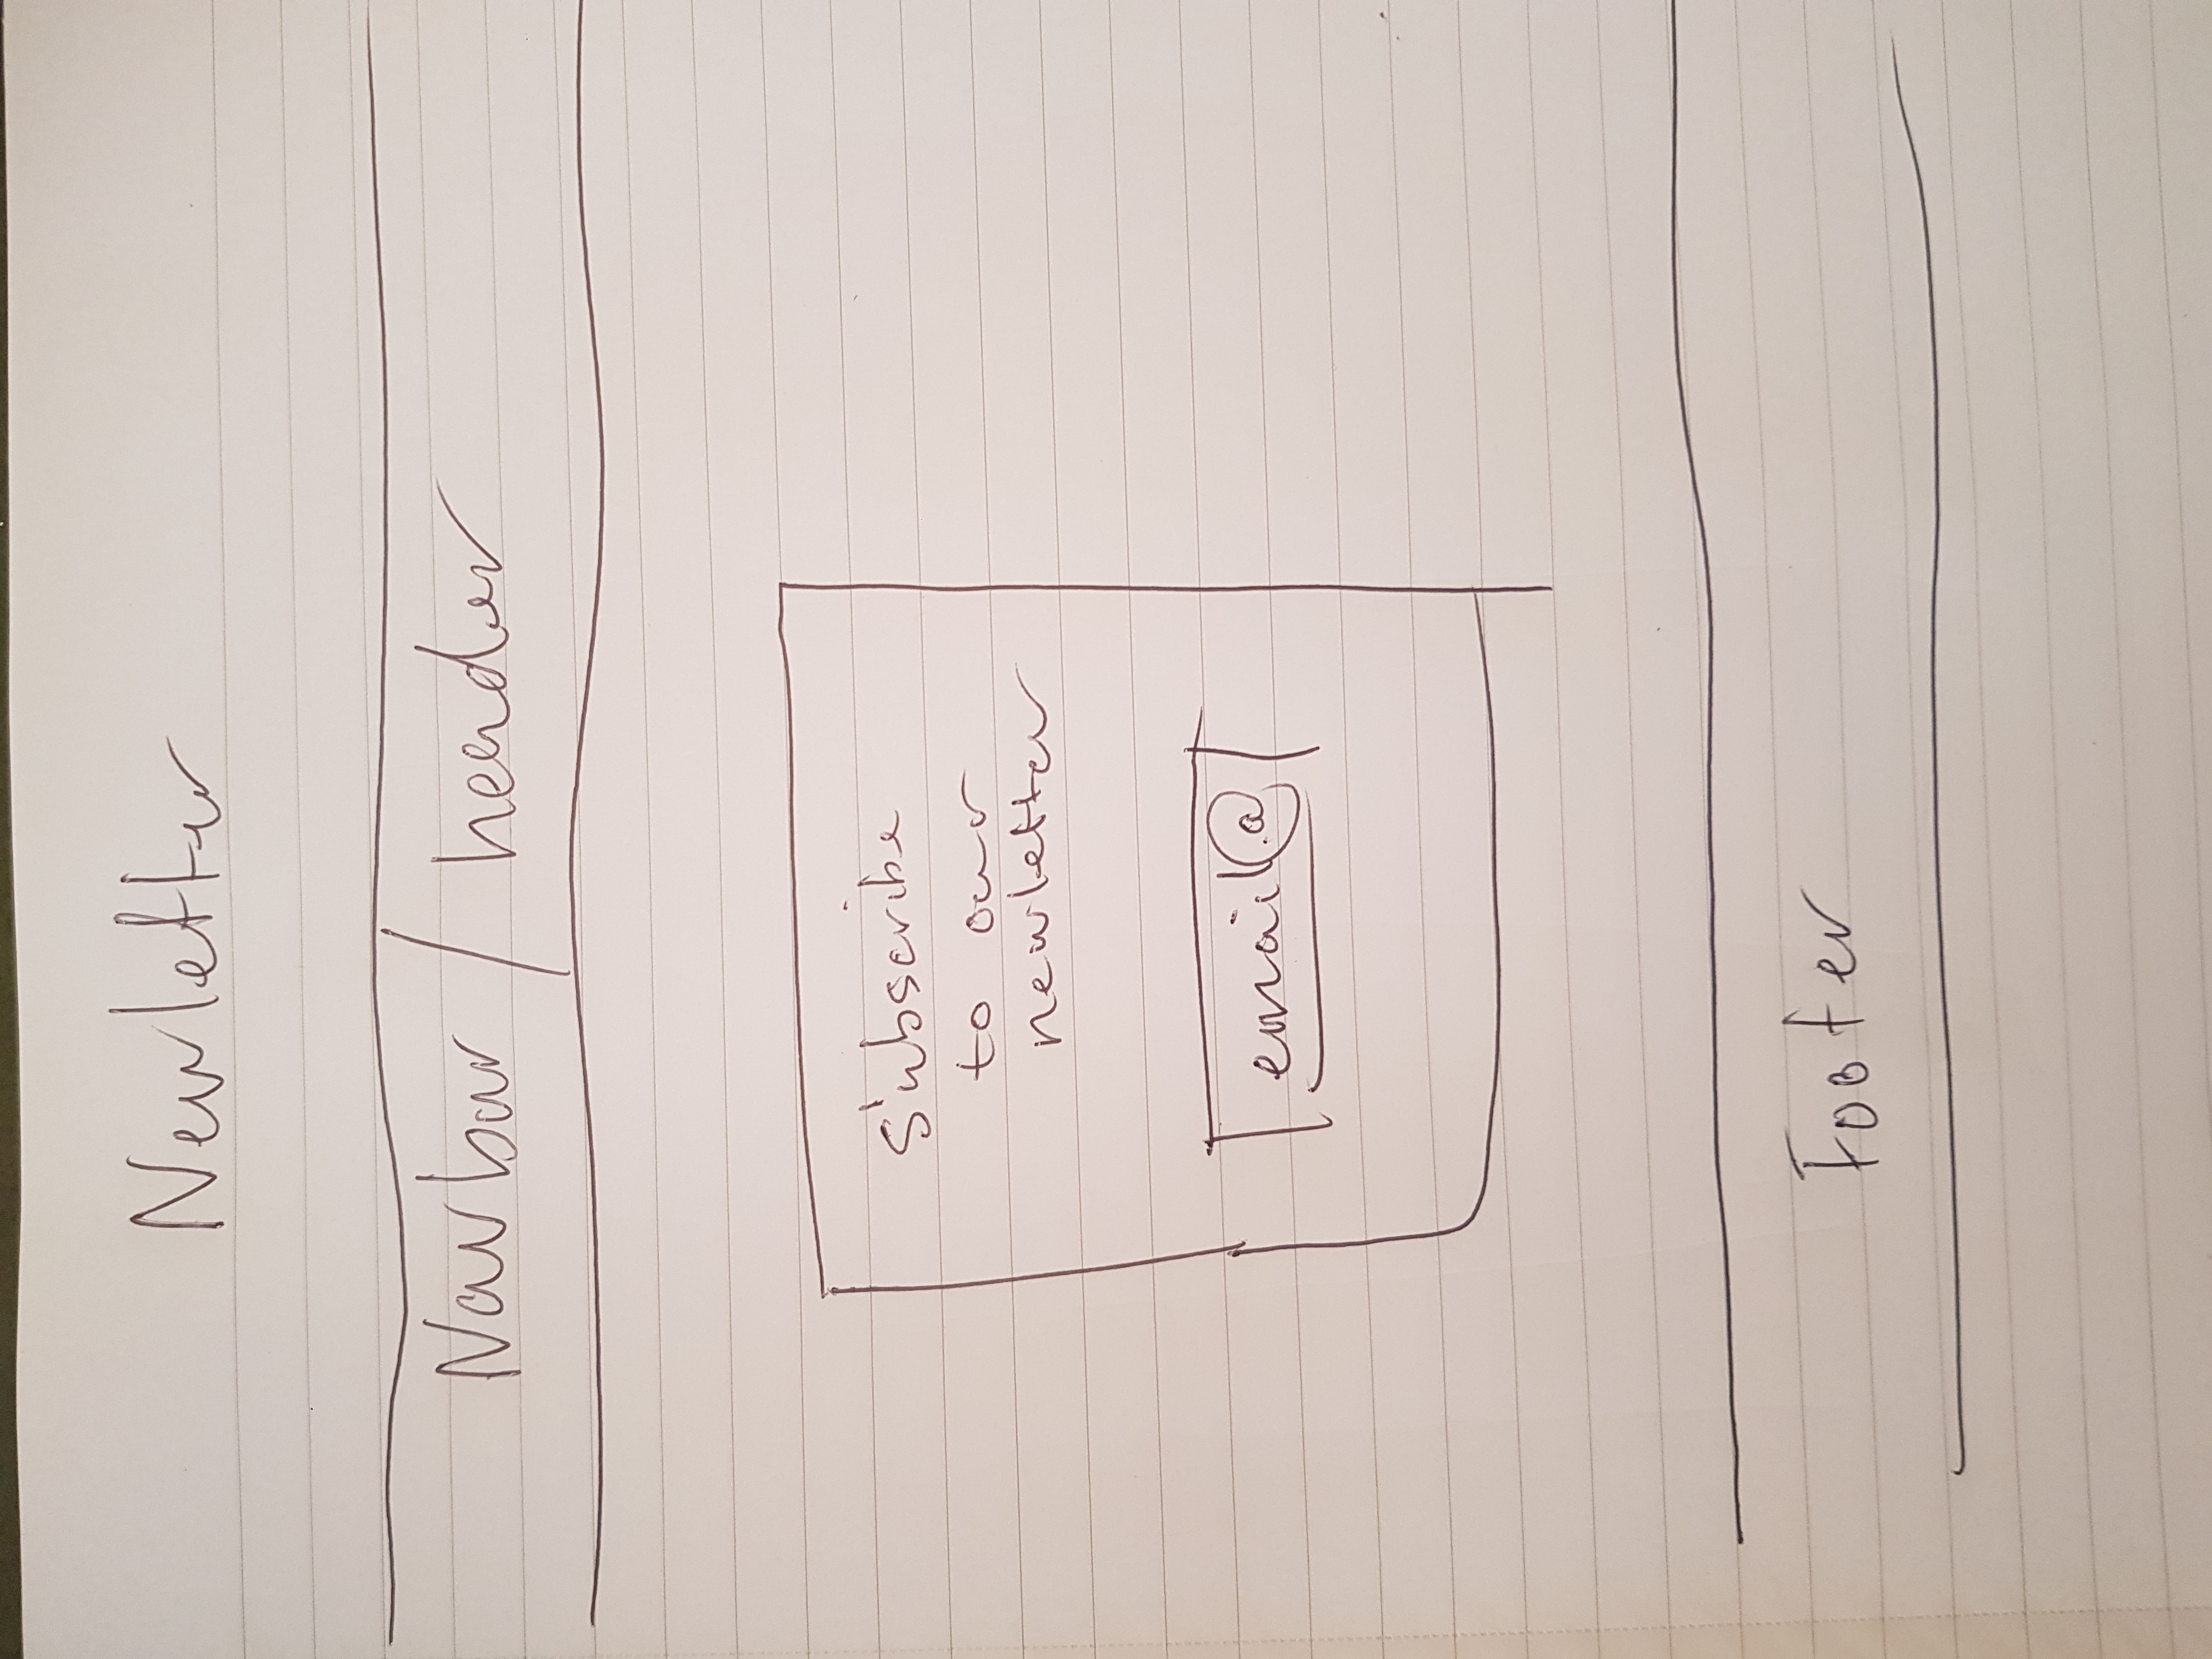 Newletter
Navbar / header
Subscribe
to our
newletter
email@
Footer